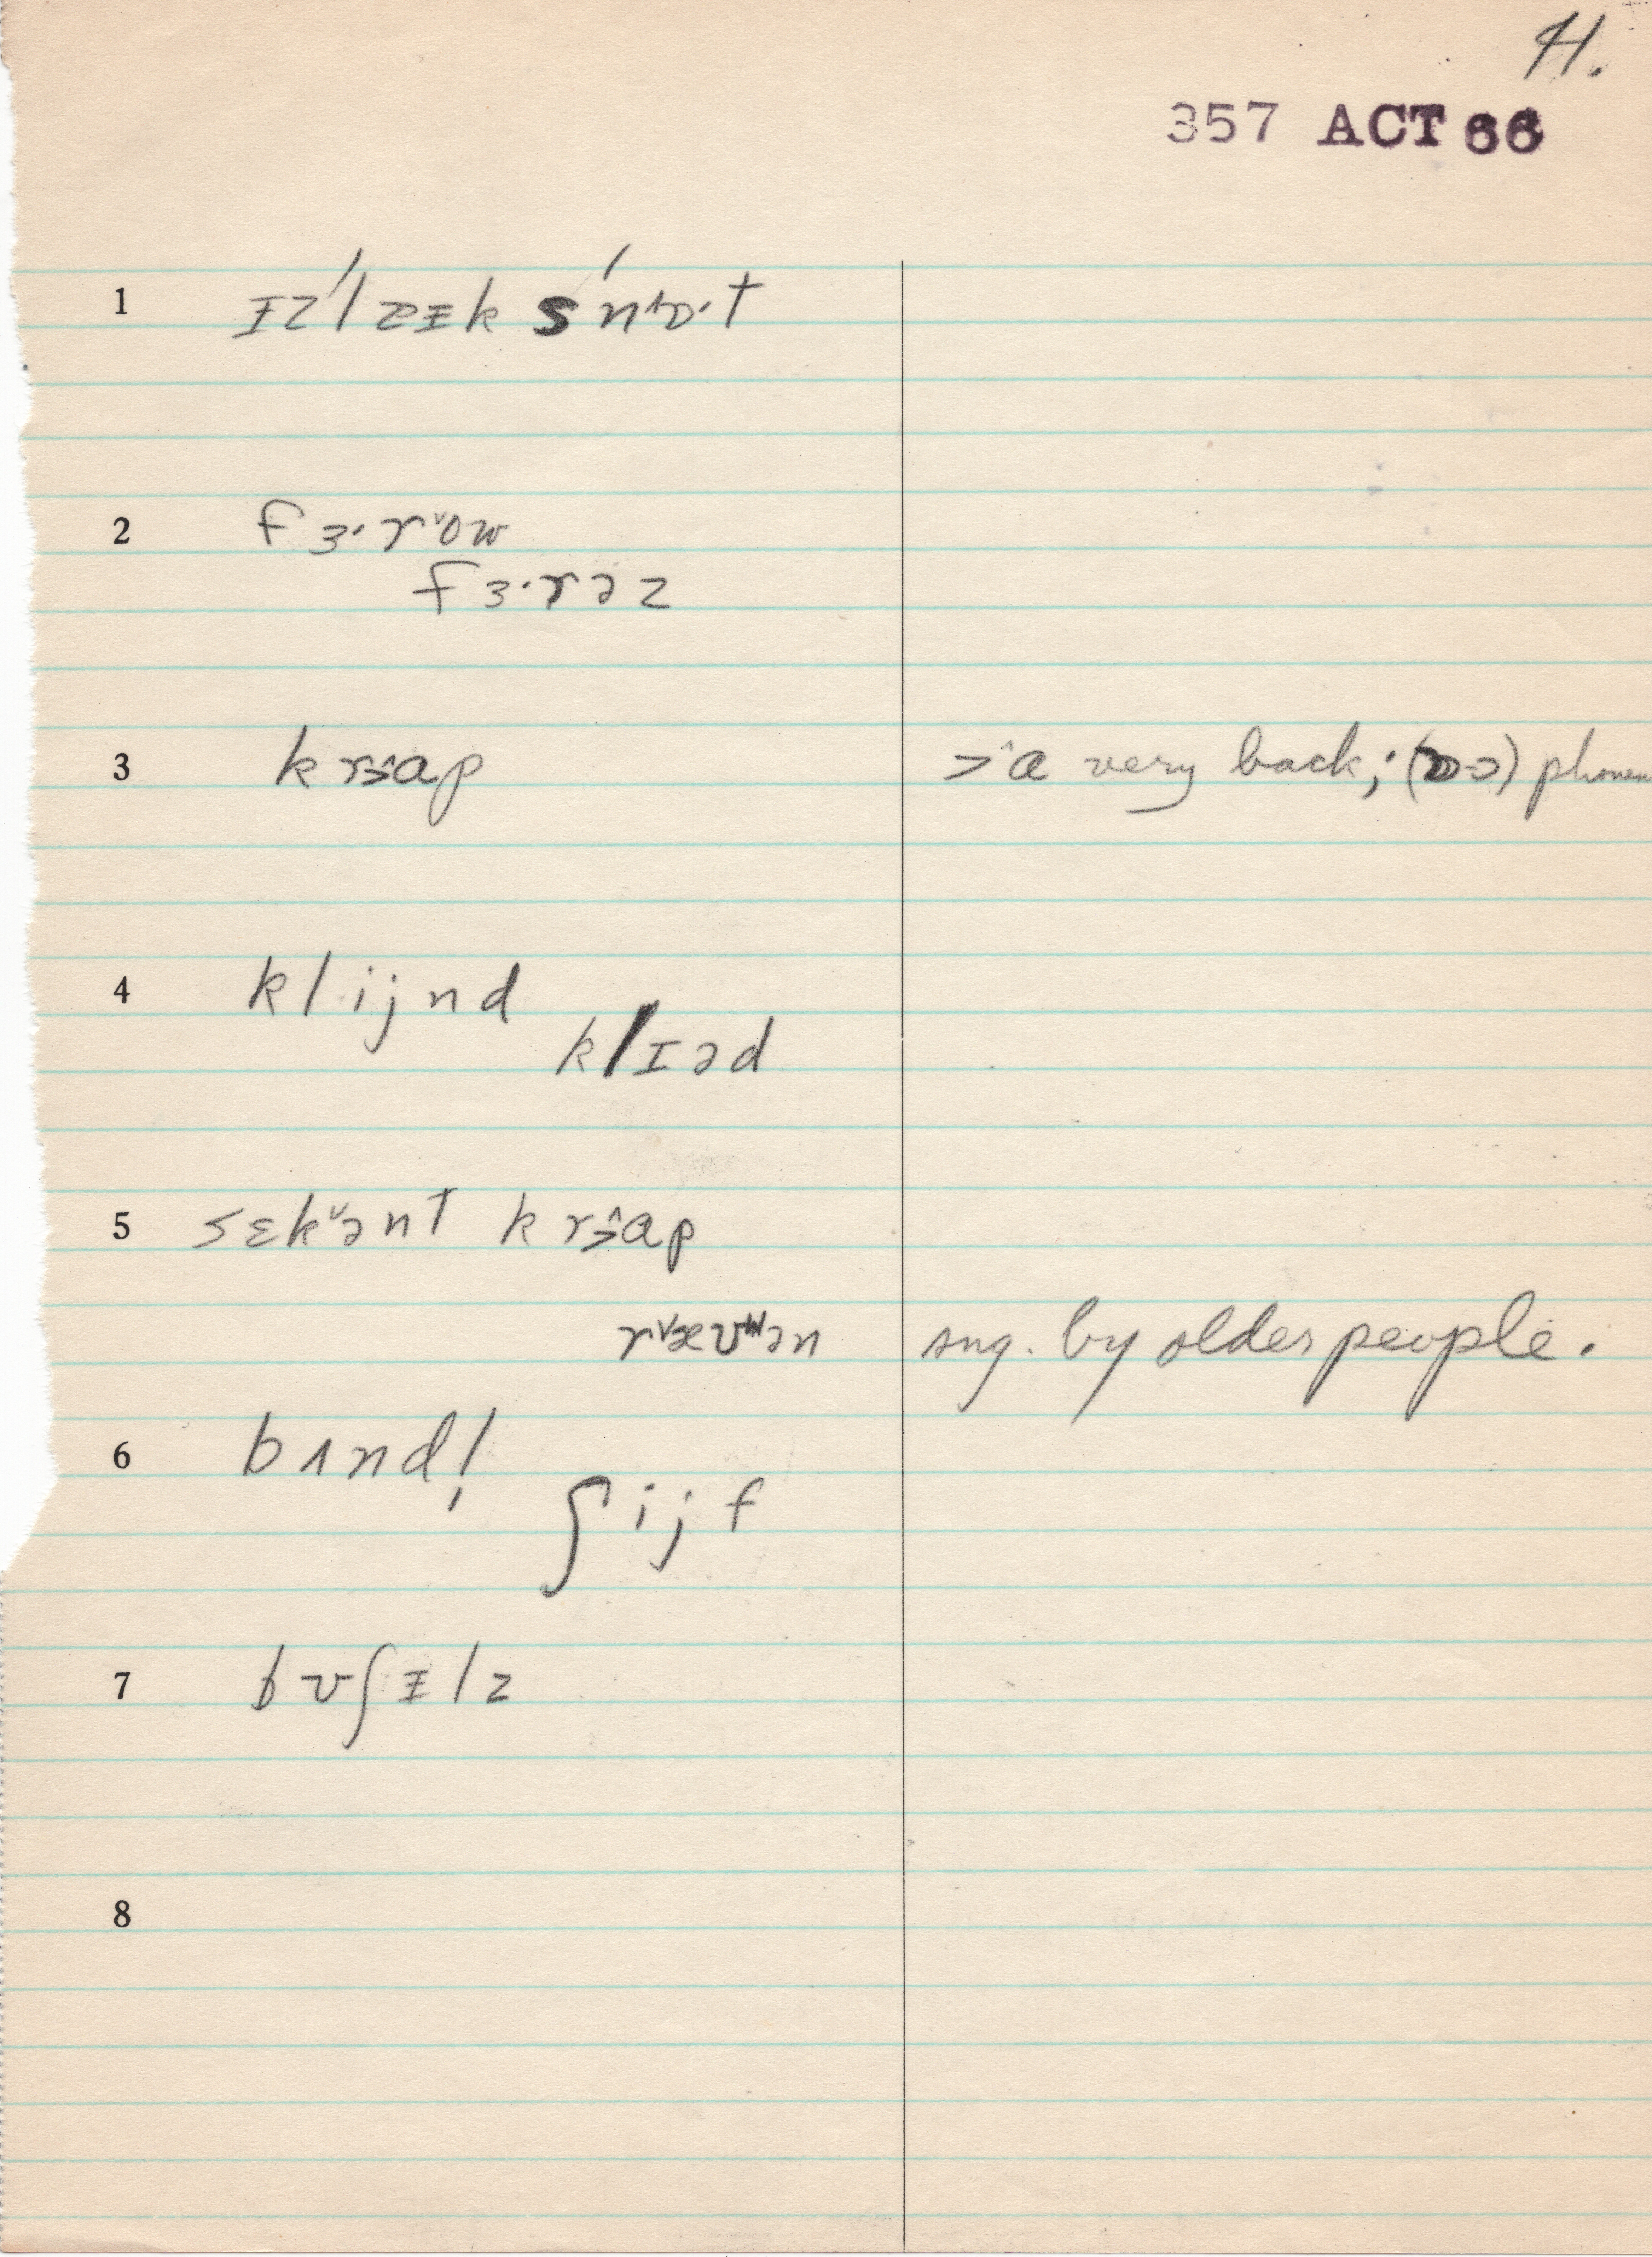 41.
357 ACT 66
1 ɪz'l zɪk s'nɒ·t
2 fɜ·row
fɜ·rəz
3 krɑp >ɑ very back; phonem
4 klijnd
klɪəd
5 sɛkənt krɑp
ræʊən sug. by older people.
6 bʌnd!
ʃijf
7 bʊʃɪlz
8